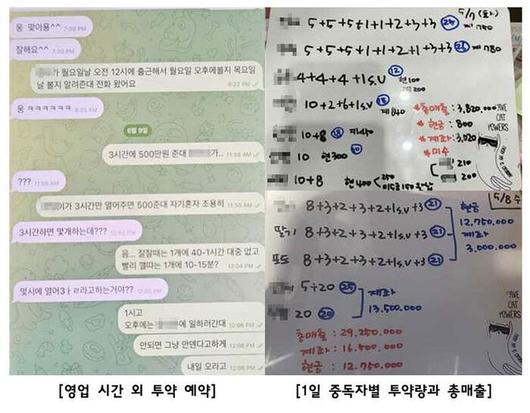 웅 맞아용^^
7:20 PM
잘해요^^
7:20 PM
가 월요일날 오전 12시에 출근해서 월요일 오후에볼지 목요일
날 볼지 알려준대 전화 왔어요
8:22 PM
웅 ㅋㅋㅋㅋㅋㅋ
8:23 PM
6월 9일
3시간에 500만원 준대
11:58 AM
???
11:59 AM
가 3시간만 열어주면 500준대 자기혼자 조용히..
11:59 AM
3시간하면 몇개하는데???
12:03 PM
음... 잘잘때는 1개에 40-1시간 대중 없고
빨리 깰때는 1개에 10-15분?
12:04 PM
몇시에 열어3ㅏㄹ라고하는거야??
12:05 PM
1시고
오후에는 에 일하러간대
12:06 PM
안되면 그냥 안덴다고하게
12:06 PM
내일 오라고
12:06 PM
5/7 (화)
5+5+5+1+1+2+3+3 25
5+5+5+1+1+2+1+3+3 26 계780
4+4+4+1S.V 12 현100
200
10+2+6+1S.V 계340
10+8 18 계450
10 현300 10
10+8 현400
총매출: 3,820.000
현금: 800
계좌: 3,020
미수
210
200
FIVE
CAT
POWERS
5/8 수
8+3+2+3+2+1S.V+3 21
딸기 8+3+2+3+2+1S.V+3 21
포도 8+3+2+3+2+1S.V+3 21
현금
12.750.000
계좌
3.000.000
5+20 25
20 20
계좌
13,500.000
총매출: 29.250.000
계좌: 16.500.000
현금: 12.750.000
[영업 시간 외 투약 예약]
[1일 중독자별 투약량과 총매출]